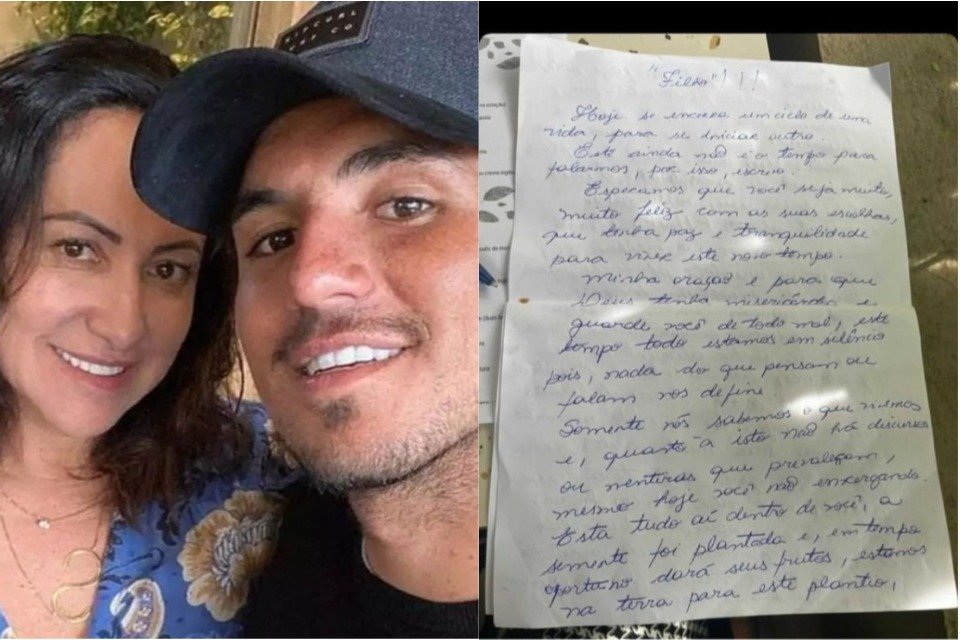 RIP CURL
"Filho"!!!
Hoje se encerra um ciclo de uma
vida, para se iniciar outro.
Este ainda não é o tempo para
falarmos, por isso, escrevo.
Esperamos que você seja muito,
muito feliz com as suas escolhas,
que tenha paz e tranquilidade
para viver este novo tempo.
Minha oração é para que
Deus tenha misericórdia e
guarde você de todo mal, este
tempo todo estamos em silêncio
pois, nada do que pensam ou
falam nos define.
Somente nós sabemos o que vivemos
e, quanto a isto não há discursos
ou mentiras que prevaleçam,
mesmo hoje você não enxergando.
Está tudo aí dentro de você, a
semente foi plantada e, em tempo
oportuno dará seus frutos, estamos
na terra para este plantio,